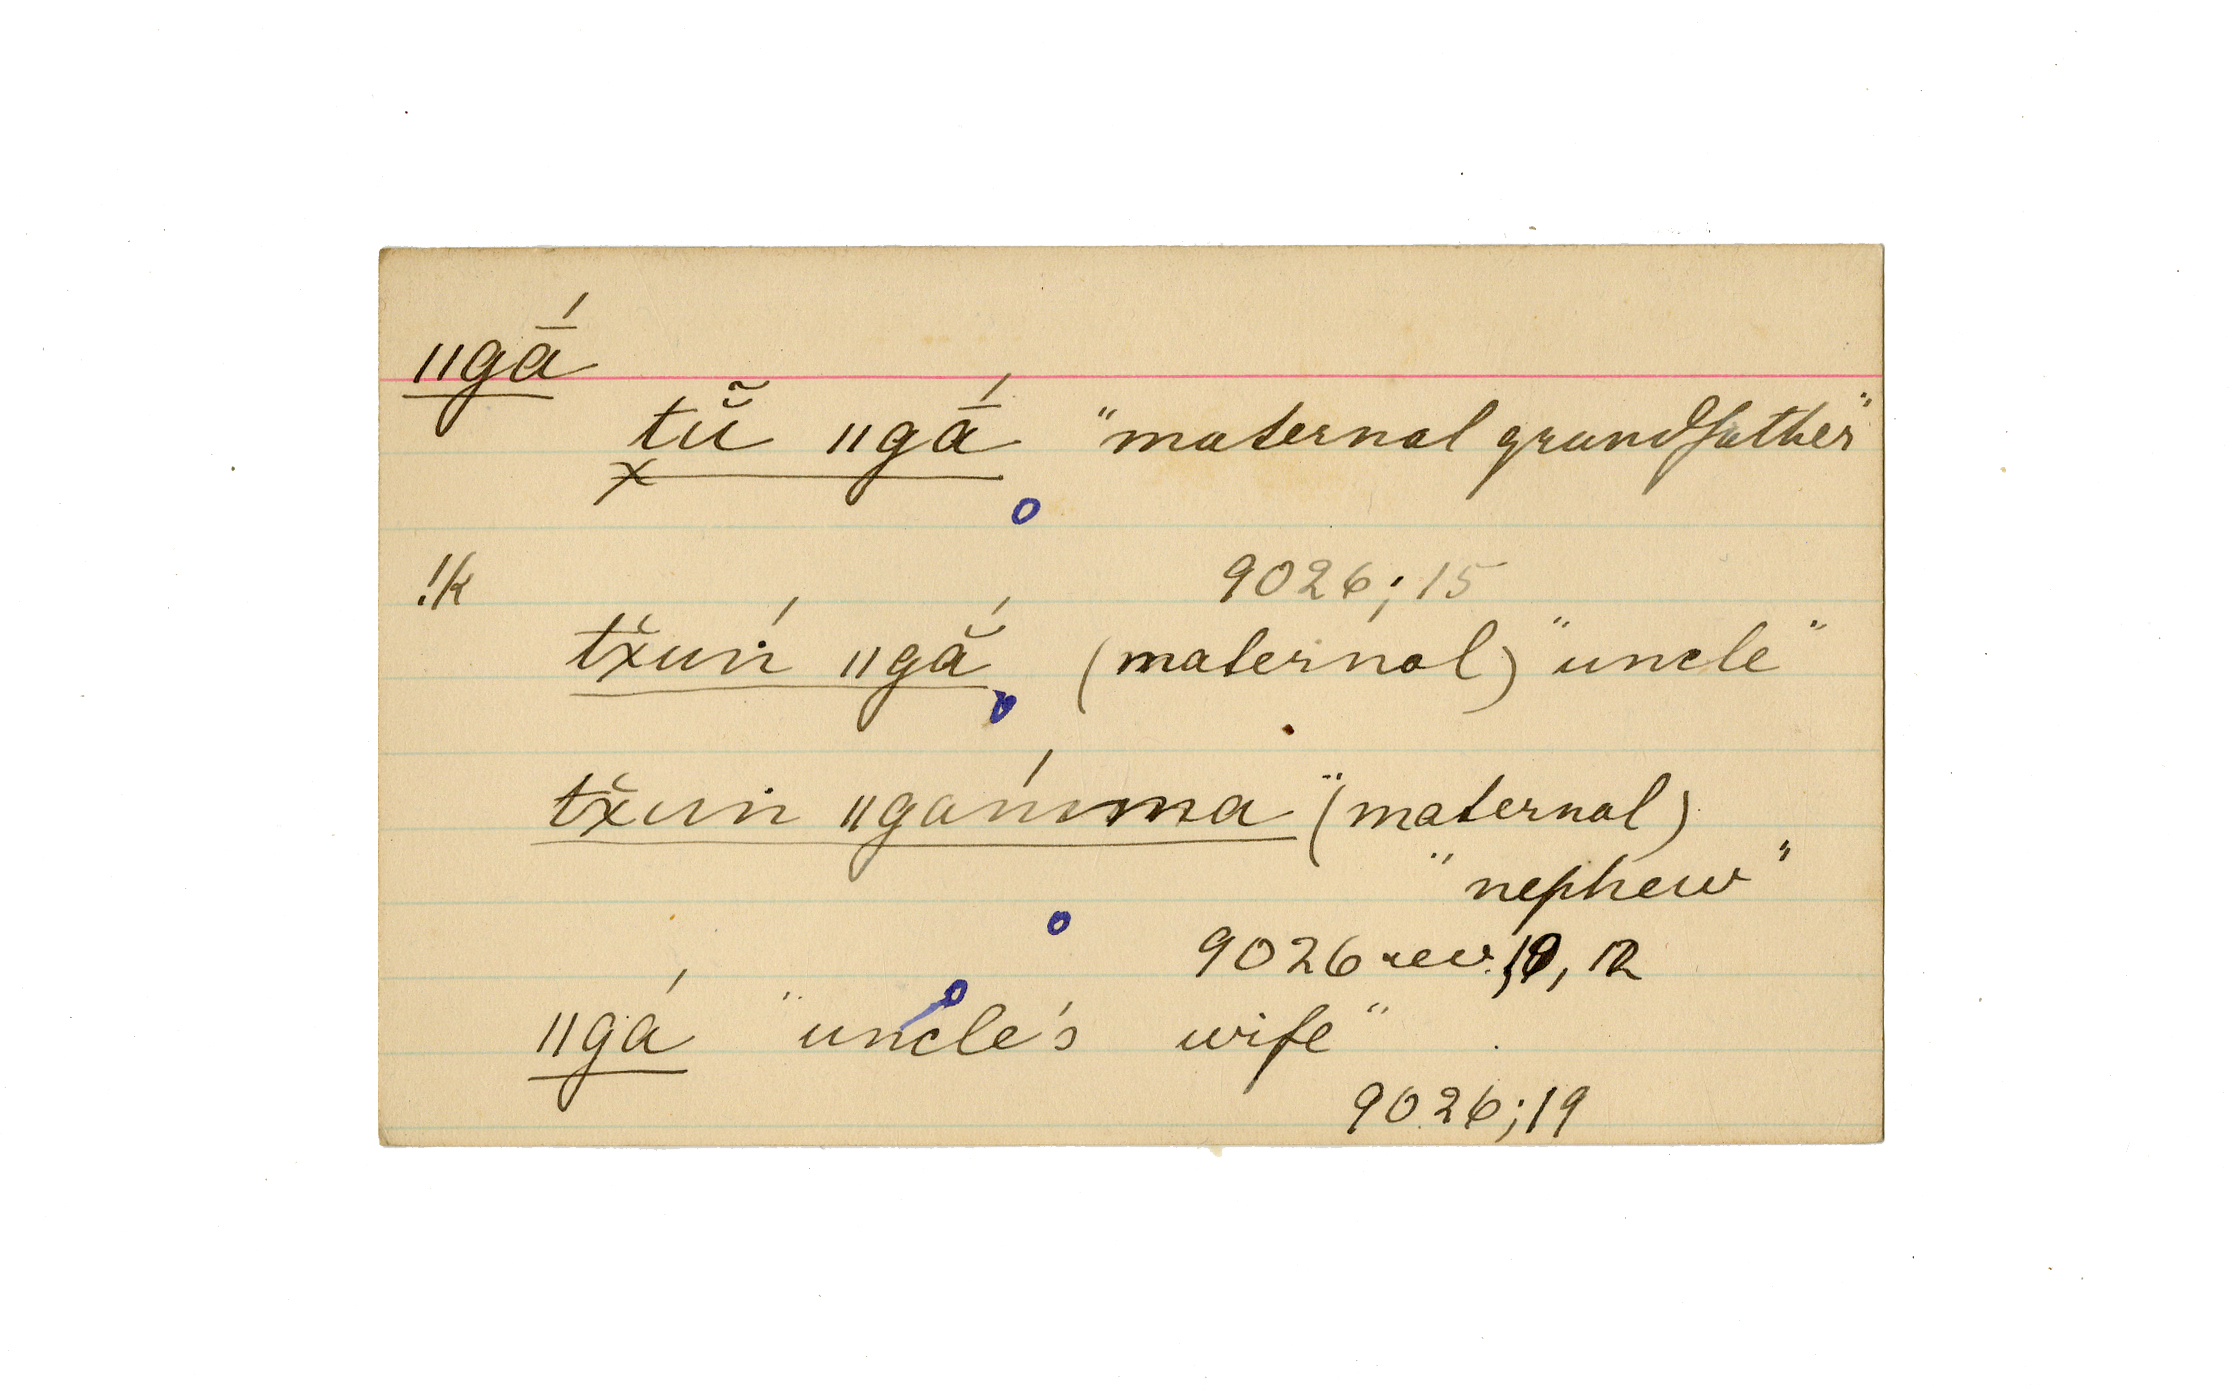 ǁgā́
tŭ̃ ǁgā́ "maternal grandfather"
x
!k 9026; 15
tx̆uń ǁgằ́ (maternal) "uncle"
tx̆uṅ ǁgańma "(maternal)
"nephew"
9026 rev. , 12
ǁgá "uncle's wife"
9026; 19